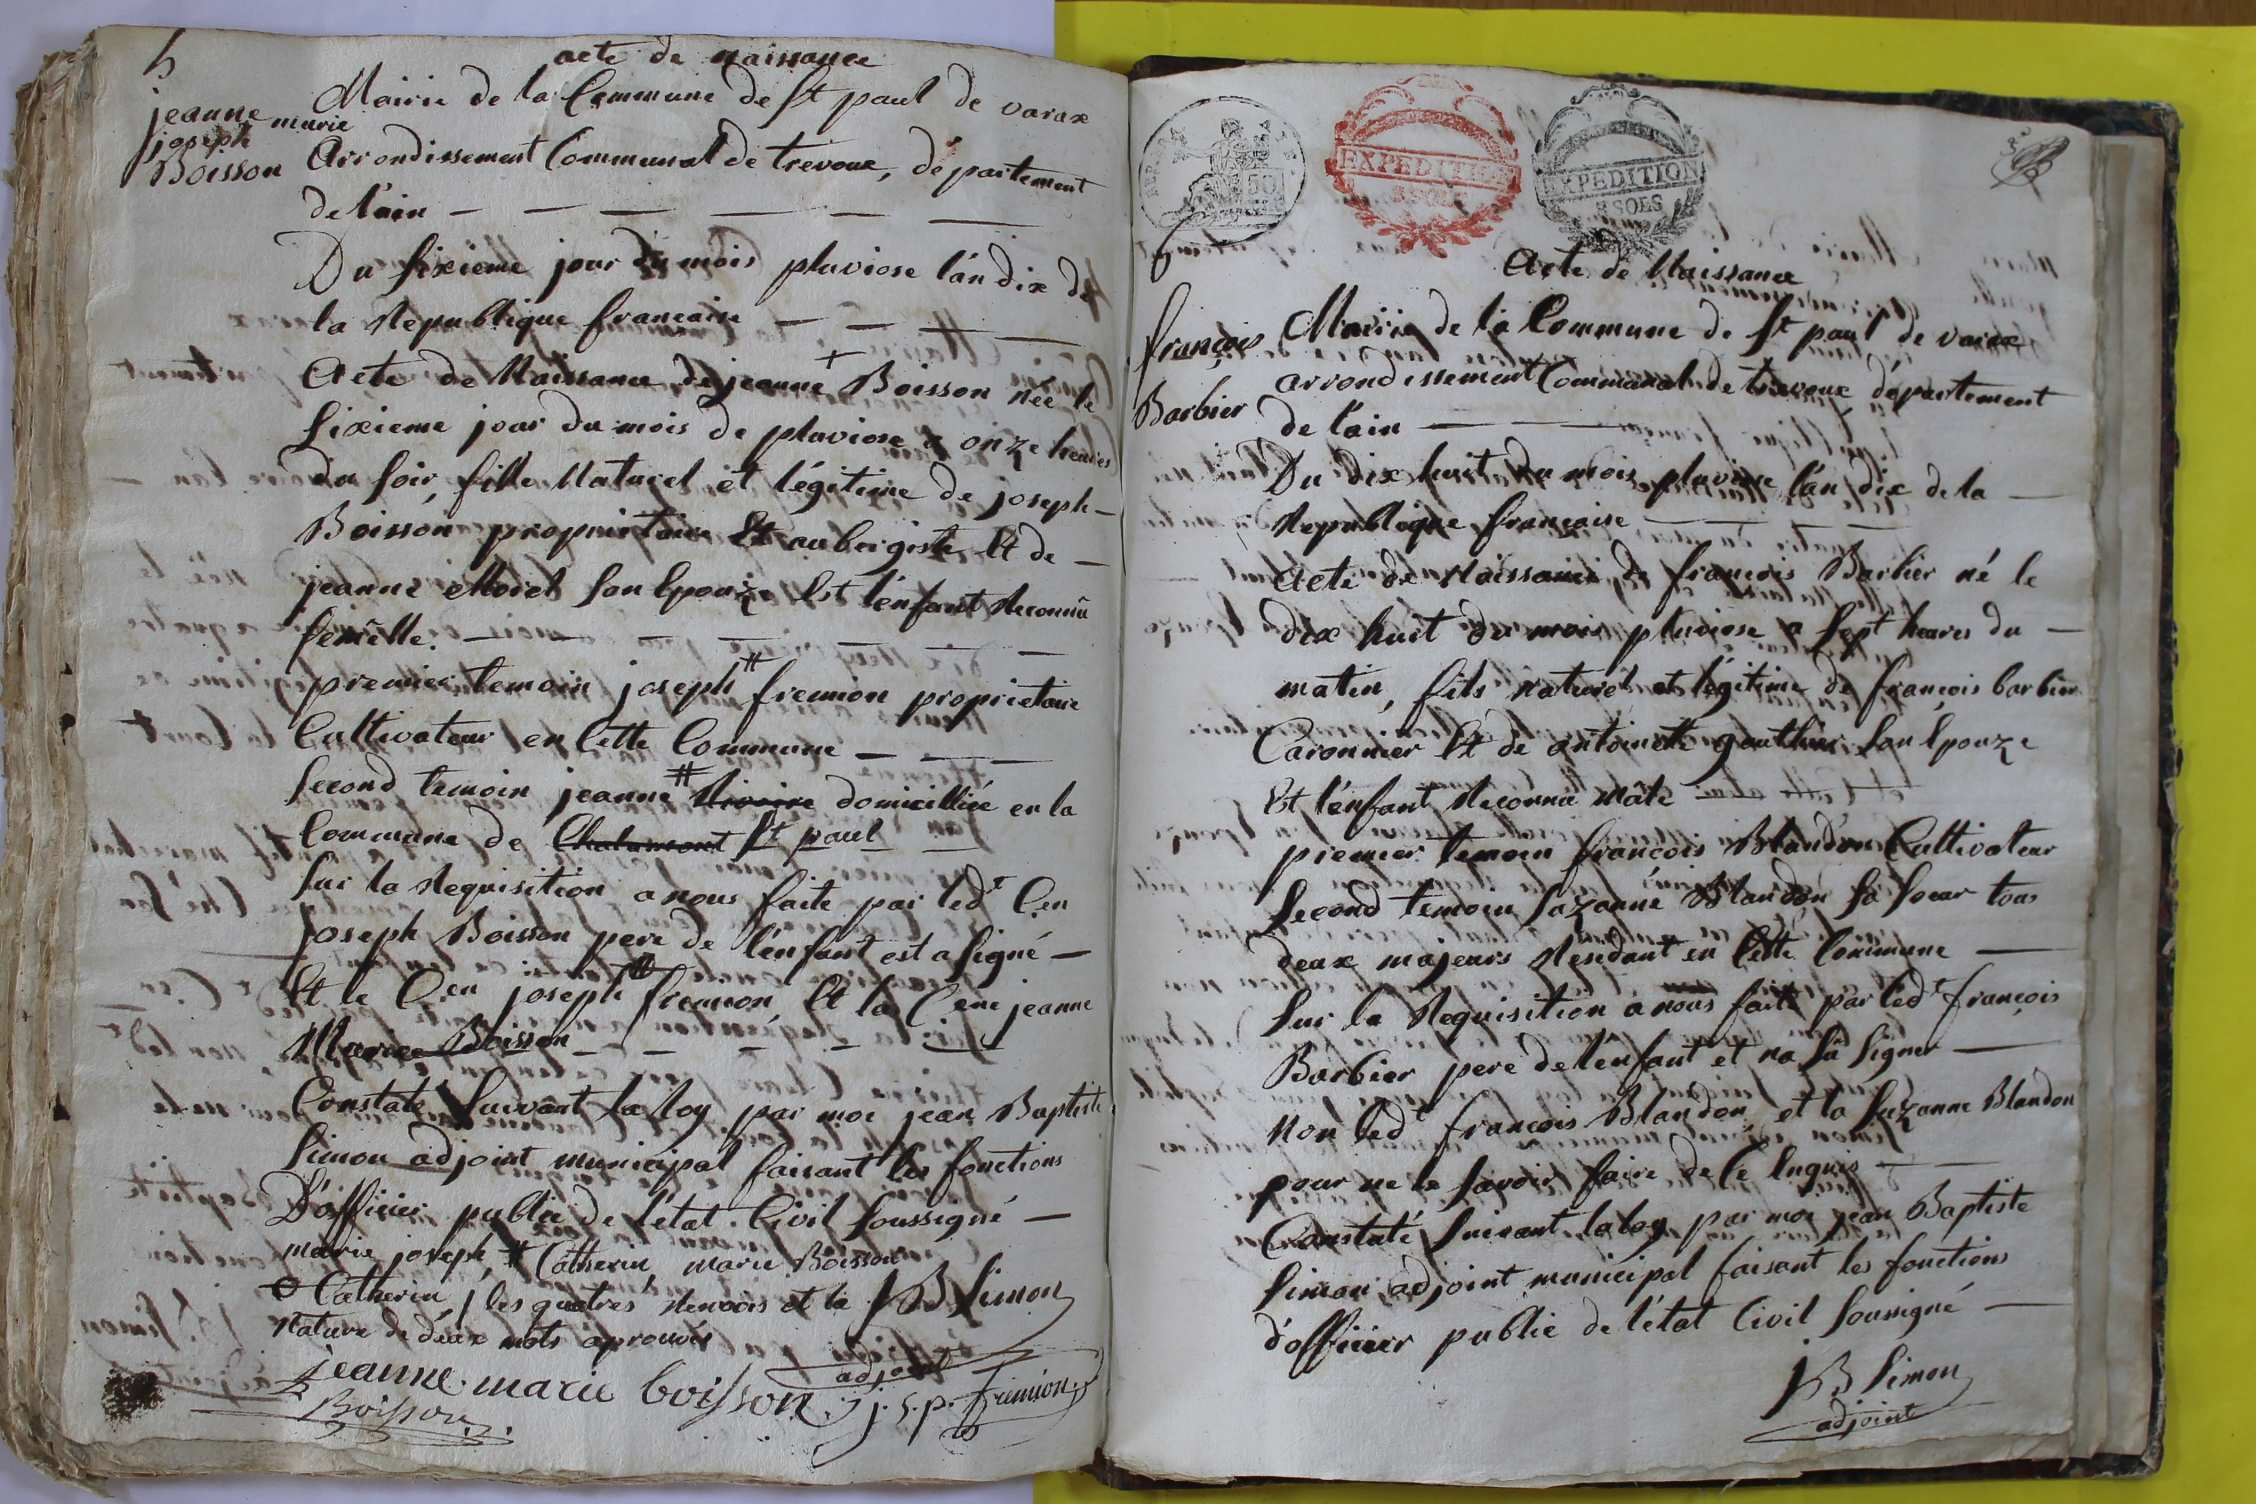 5
acte de naissance
jeanne marie
joseph
Boisson
Mairie de la Commune de St paul de varax
Arrondissement Communal de trevoux, département
de l'ain
Du sixieme jour du mois pluviose l'an dix de
la Republique francaise
Acte de Naissance de jeanne + Boisson née le
sixieme jour du mois de pluviose a onze heures
du soir, fille Naturel et légitime de joseph
Boisson proprietaire Et aubergiste Et de
jeanne Morel son Epouze Est l'enfant Reconnu
femelle.
premier temoin joseph # fremion proprietaire
Cultivateur en Cette Commune
second temoin jeanne # domicilliée en la
Commune de Chalamont St paul
sur la Requisition a nous faite par ledt Cen
joseph Boisson pere de l'enfant est a signé
Et le Cen joseph # fremion Et la Cene jeanne
Marie Boisson
Constaté suivant la loy par moi jean Baptiste
Simon adjoint municipal faisant les fonctions
D'officier public de l'état Civil soussigné
marie joseph, # Catherin marie Boisson
Catherin, les quatres Renvois et la
rature de deux mots aprouvés
JB Simon
adjoint
jeanne marie boisson
j. s. p. fremion
Boisson
6
EXPEDITION
EXPEDITION
SOLS
50
Acte de Naissance
françois
Barbier
Mairie de la Commune de St paul de varax
arrondissement Communal de trevoux, département
de l'ain
Du dix huit du mois pluviose l'an dix de la
Republique française
Acte de Naissance de francois Barbier né le
dix huit du mois pluviose a sept heures du
matin, fils naturel et légitime de françois barbier
Caronnier Et de antoinette gouthier son Epouze
Est l'enfant Reconnu mâle
premier temoin francois Blandon Cultivateur
second temoin suzanne Blandon sa soeur tous
deux majeurs Residant en Cette Commune
Sur la Requisition a nous faite par ledt françois
Barbier pere de l'enfant et na sû signer
Non ledt francois Blandon, et la Suzanne Blandon
pour ne le savoir faire de Ce Enquis
Constaté suivant la loy par moi jean Baptiste
Simon adjoint municipal faisant les fonctions
d'officier public de l'état Civil soussigné
JB Simon
adjoint